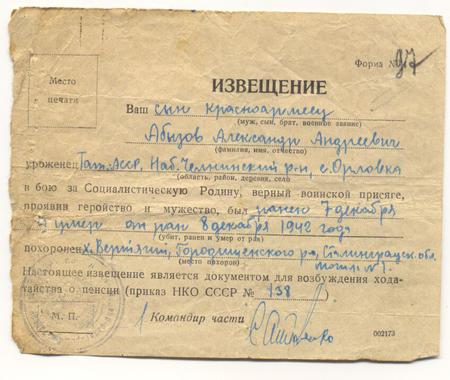 Место печати
Форма № 97
ИЗВЕЩЕНИЕ
Ваш сын красноармеец
(муж, сын, брат, военное звание)
Абызов Александр Андреевич
(фамилия, имя, отчество)
уроженец Тат. АССР, Наб. Челнинский р-н, с. Орловка
(область, район, деревня, село)
в бою за Социалистическую Родину, верный воинской присяге,
проявив геройство и мужество, был ранен 7 декабря
и умер от ран 8 декабря 1942 года
(убит, ранен и умер от ран)
похоронен х. Вертячий, Городищенского р-на, Сталинградск. обл.
(место похорон) могила №1.
Настоящее извещение является документом для возбуждения хода-
тайства о пенсии (приказ НКО СССР № 138
М. П.
Командир части
002173